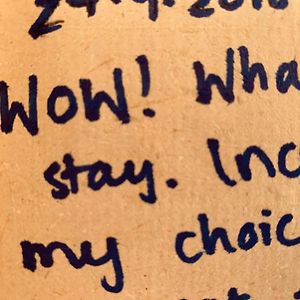 WOW! Wha
stay. Inc
my choic